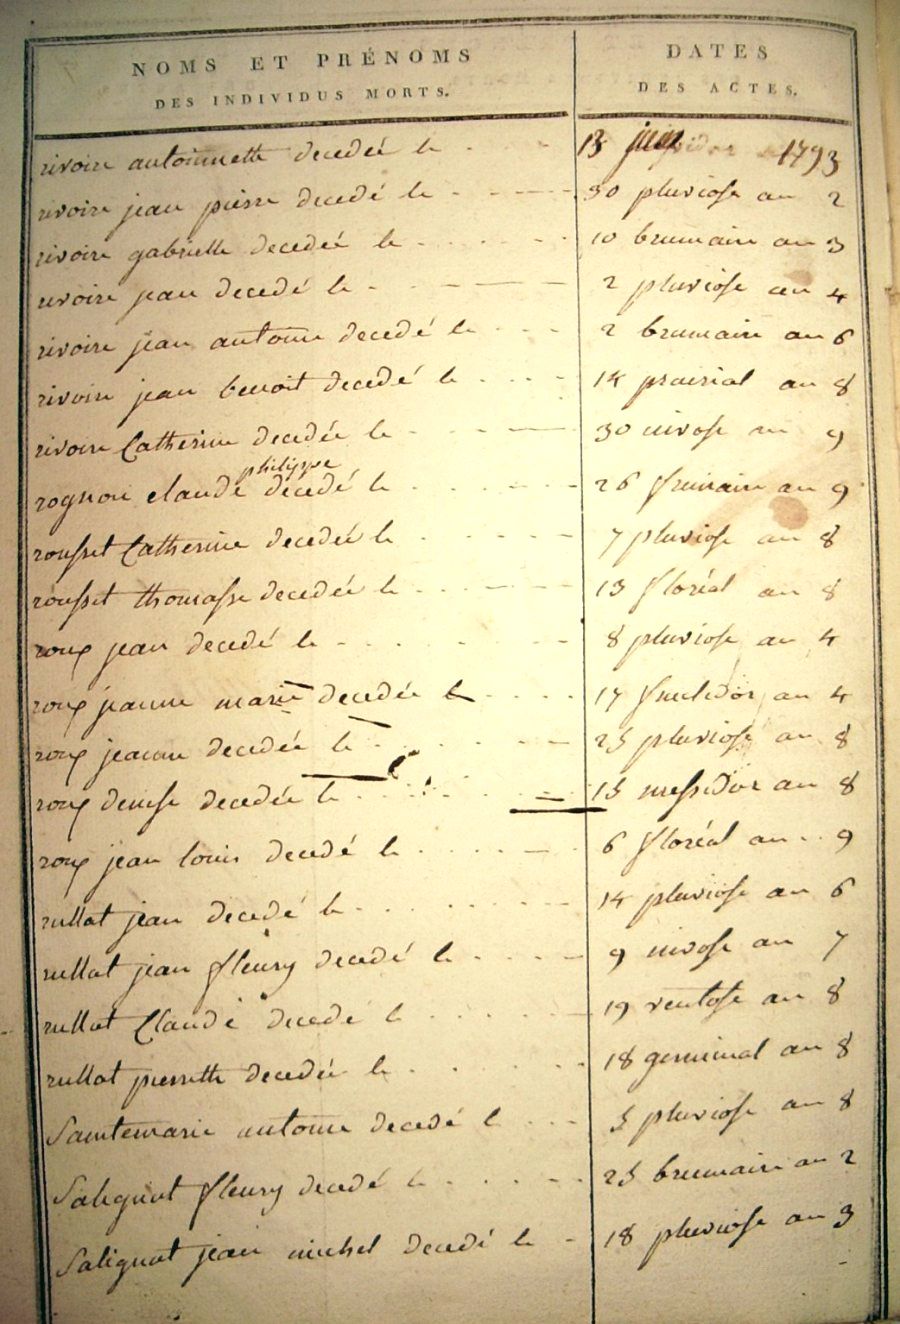 NOMS ET PRÉNOMS
DES INDIVIDUS MORTS.
DATES
DES ACTES.
rivoire antoinnette decedée le 13 juin 1793
rivoire jean pierre decedé le 30 pluviose an 2
rivoire gabrielle decedée le 10 brumaire an 3
rivoire jean decedé le 2 pluviose an 4
rivoire jean antoinne decedé le 2 brumaire an 6
rivoire jean benoit decedé le 14 prairial an 8
rivoire Catherine decedée le 30 nivose an 9
philippe
rognon claude decedé le 26 frimaire an 9
rousset Catherine decedée le 7 pluviose an 8
rousset thomasse decedée le 13 floréal an 8
roux jean decedé le 8 pluviose an 4
roux jeanne marie decedée le 17 fructidor an 4
roux jeanne decedée le 25 pluviose an 8
roux denise decedée le 15 messidor an 8
roux jean louis decedé le 6 floréal an 9
rullat jean decedé le 14 pluviose an 6
rullat jean fleury decedé le 9 nivose an 7
rullat Claude decedé le 19 ventose an 8
rullat pierrette decedée le 18 germinal an 8
Saintemarie antoinne decedé le 5 pluviose an 8
Salignat fleury decedé le 25 brumaire an 2
Salignat jean michel decedé le 18 pluviose an 3